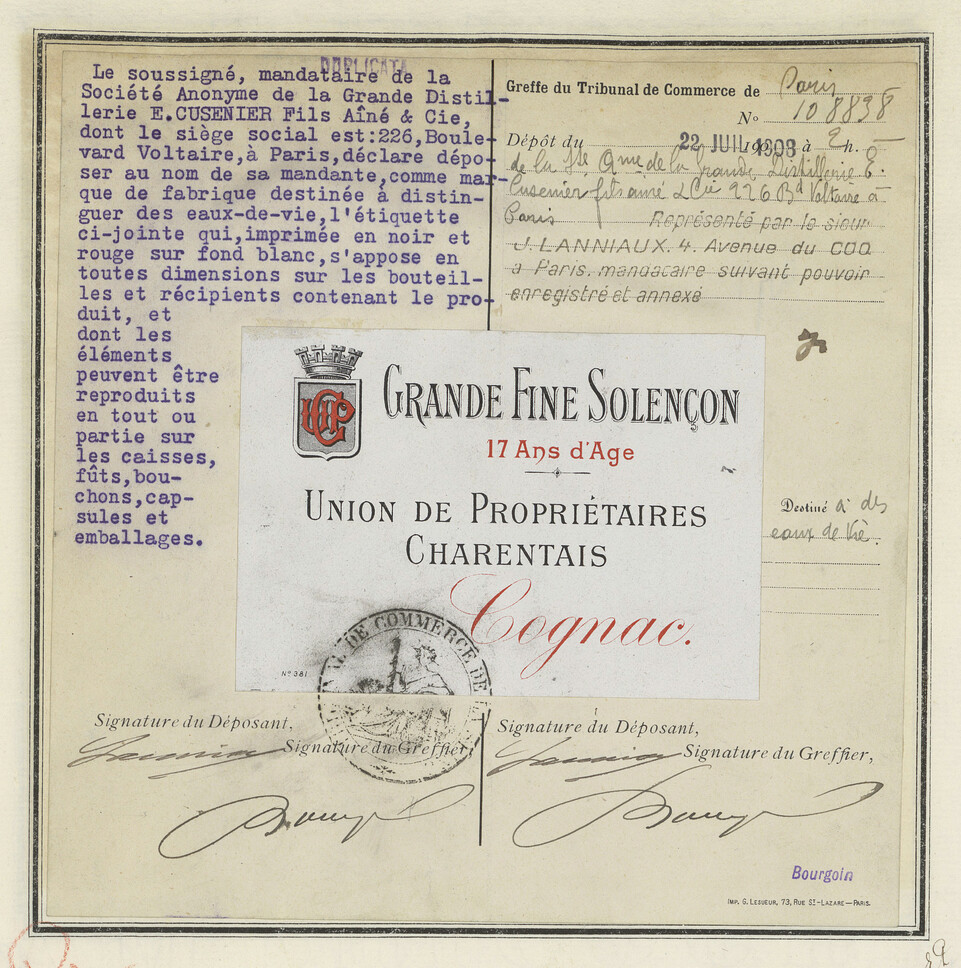 DUPLICATA
Le soussigné, mandataire de la
Société Anonyme de la Grande Distil-
lerie E.CUSENIER Fils Aîné & Cie,
dont le siège social est:226,Boule-
vard Voltaire,à Paris,déclare dépo-
ser au nom de sa mandante,comme mar-
que de fabrique destinée à distin-
guer des eaux-de-vie,l'étiquette
ci-jointe qui,imprimée en noir et
rouge sur fond blanc,s'appose en
toutes dimensions sur les bouteil-
les et récipients contenant le pro-
duit, et
dont les
éléments
peuvent être
reproduits
en tout ou
partie sur
les caisses,
fûts,bou-
chons,cap-
sules et
emballages.
Greffe du Tribunal de Commerce de Paris
No 108838
Dépôt du 22 JUIL 1908 à 2 h.
de la Sté Ame de la Grande Distillerie E.
Cusenier fils ainé & Cie 226 Bd Voltaire à
Paris Représenté par le sieur
J. LANNIAUX. 4. Avenue du COQ
a Paris. mandataire suivant pouvoir
enregistré et annexé
UCP
GRANDE FINE SOLENÇON
17 Ans d'Age
UNION DE PROPRIÉTAIRES
CHARENTAIS
Cognac.
No 381
Destiné à des
eaux de vie.
TRIBUNAL DE COMMERCE DE
Signature du Déposant,
Signature du Greffier,
Signature du Déposant,
Signature du Greffier,
Bourgoin
IMP. G. LESUEUR, 73, RUE ST-LAZARE—PARIS.